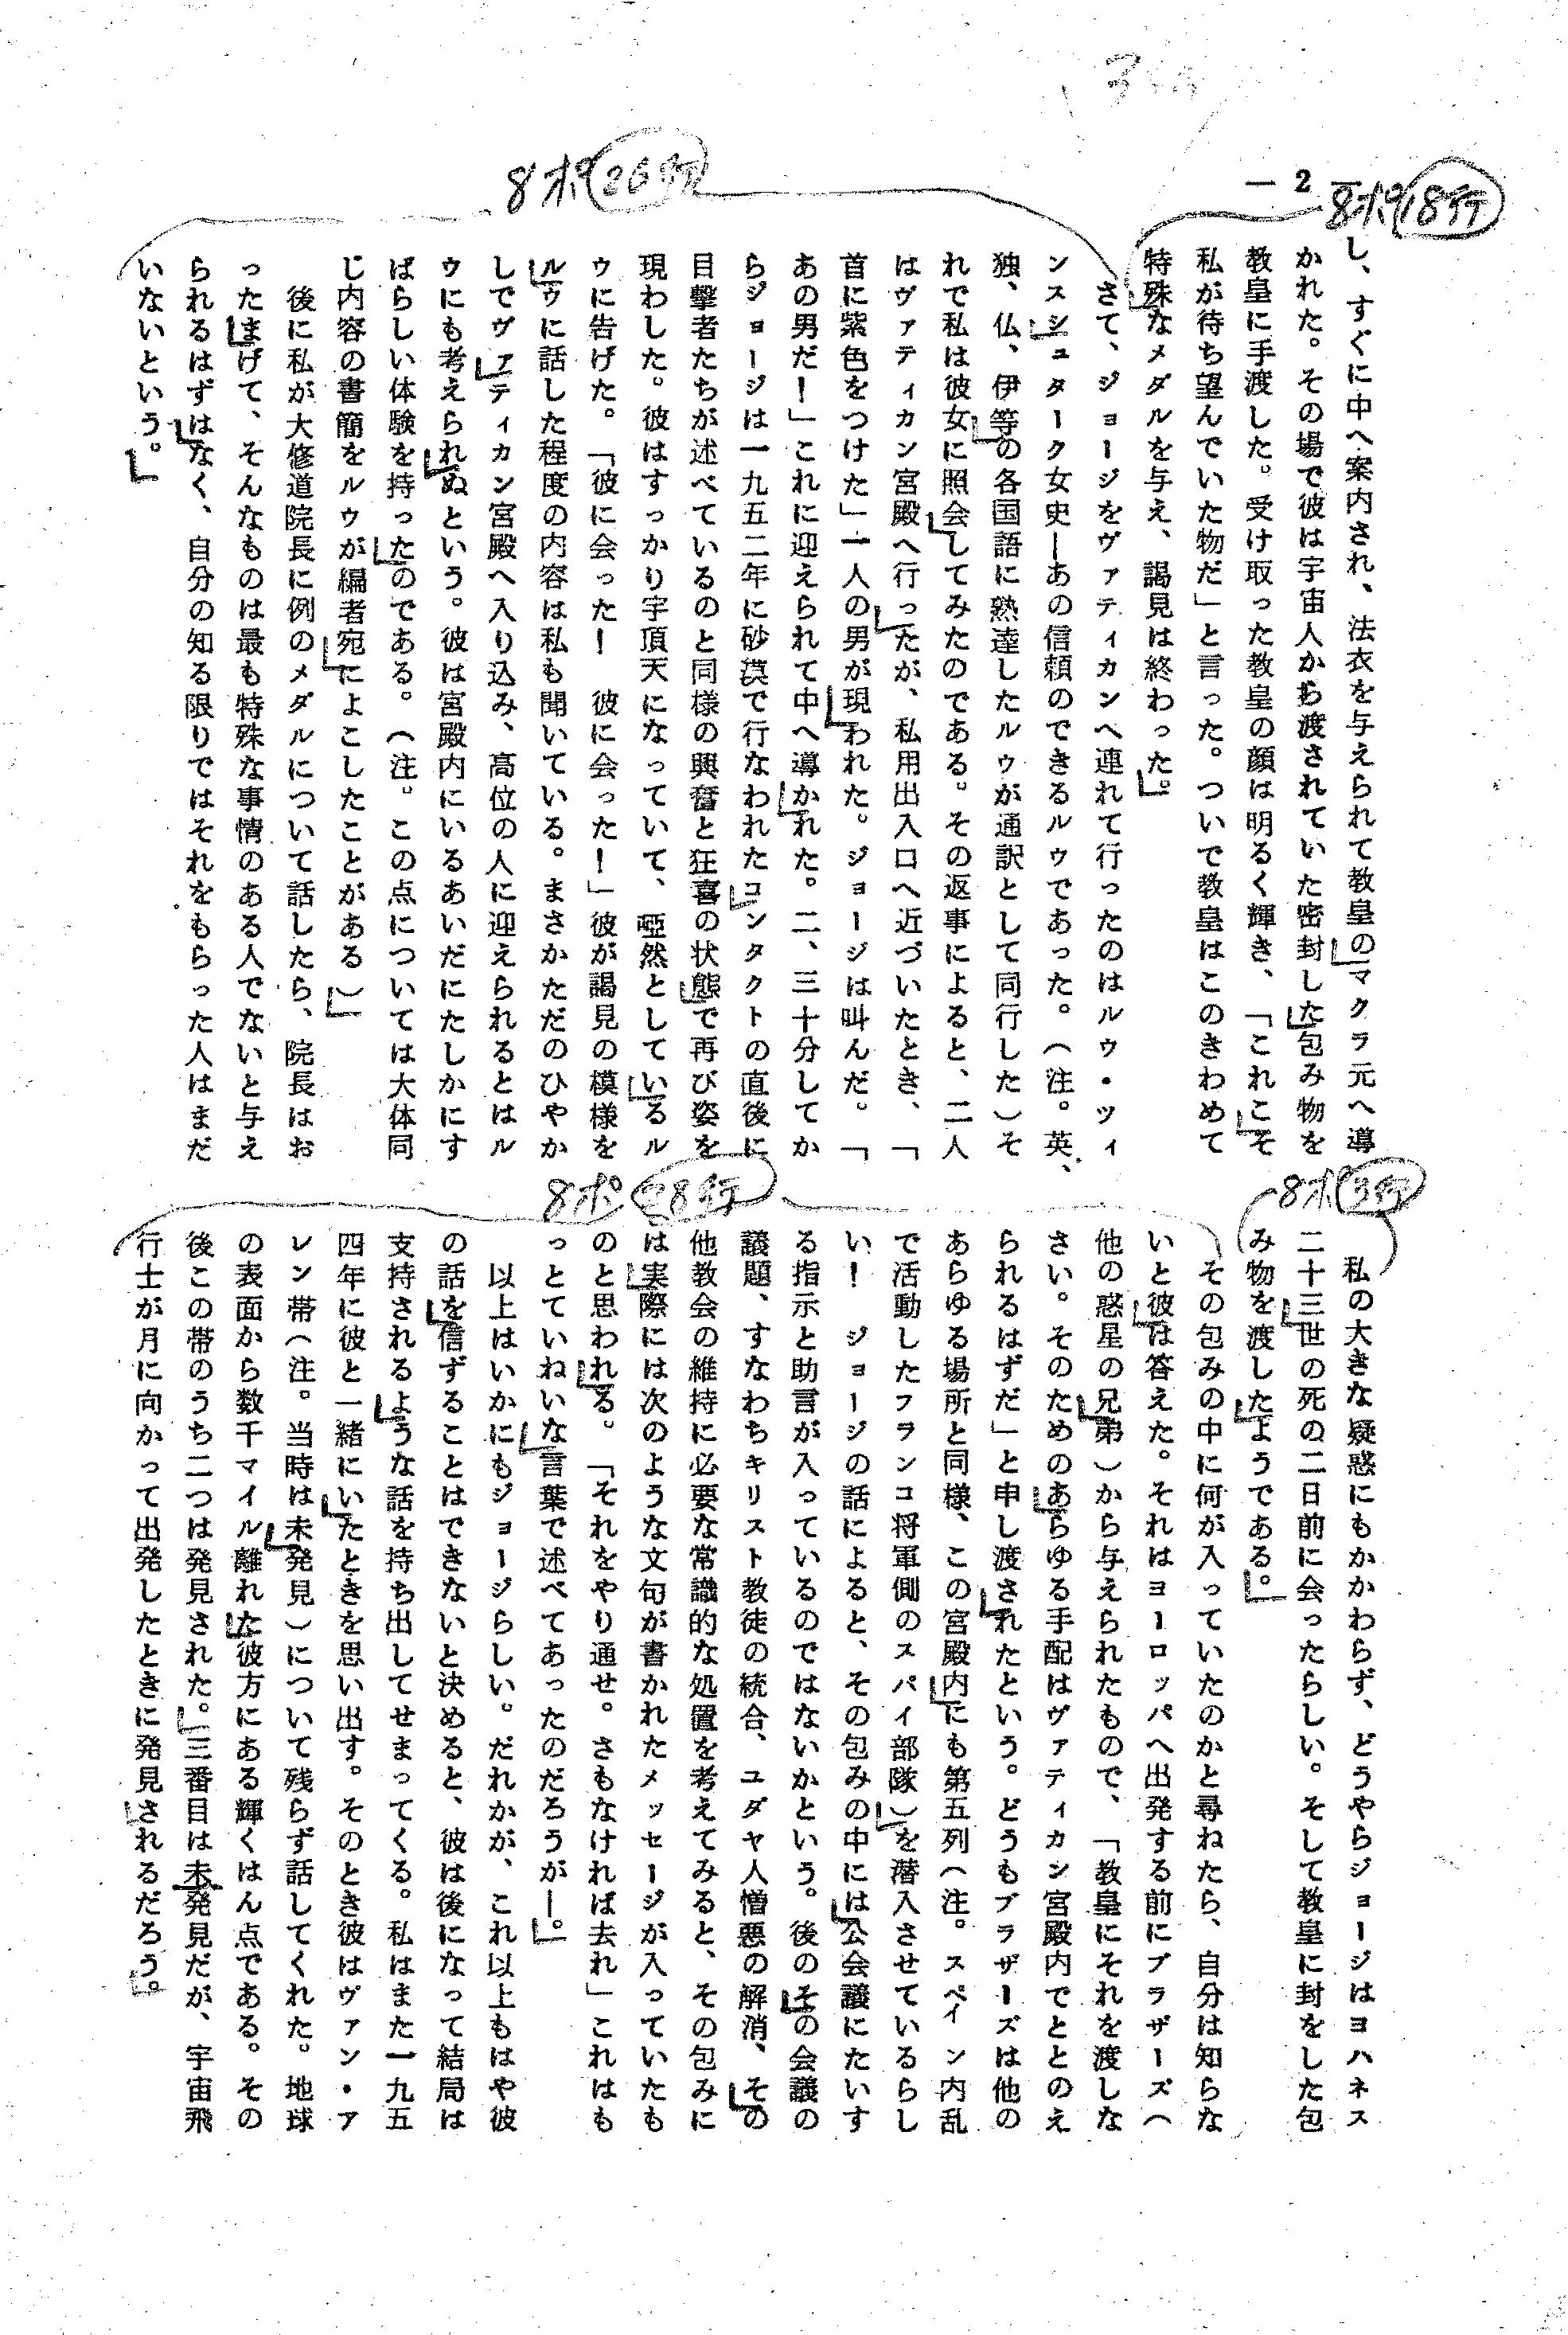 ― 2 ―
8ポ 18行
し、すぐに中へ案内され、法衣を与えられて教皇のマクラ元へ導
かれた。その場で彼は宇宙人から渡されていた密封した包み物を
教皇に手渡した。受け取った教皇の顔は明るく輝き、「これこそ
私が待ち望んでいた物だ」と言った。ついで教皇はこのきわめて
特殊なメダルを与え、謁見は終わった。
8ポ 26行
さて、ジョージをヴァティカンへ連れて行ったのはルウ・ツィ
ンスシュターク女史―あの信頼のできるルウであった。（注。英、
独、仏、伊等の各国語に熟達したルウが通訳として同行した）そ
れで私は彼女に照会してみたのである。その返事によると、二人
はヴァティカン宮殿へ行ったが、私用出入口へ近づいたとき、「
首に紫色をつけた」一人の男が現われた。ジョージは叫んだ。「
あの男だ！」これに迎えられて中へ導かれた。二、三十分してか
らジョージは一九五二年に砂漠で行なわれたコンタクトの直後に
目撃者たちが述べているのと同様の興奮と狂喜の状態で再び姿を
現わした。彼はすっかり宇頂天になっていて、啞然としているル
ウに告げた。「彼に会った！　彼に会った！」彼が謁見の模様を
ルウに話した程度の内容は私も聞いている。まさかただのひやか
しでヴァティカン宮殿へ入り込み、高位の人に迎えられるとはル
ウにも考えられぬという。彼は宮殿内にいるあいだにたしかにす
ばらしい体験を持ったのである。（注。この点については大体同
じ内容の書簡をルウが編者宛によこしたことがある）
後に私が大修道院長に例のメダルについて話したら、院長はお
ったまげて、そんなものは最も特殊な事情のある人でないと与え
られるはずはなく、自分の知る限りではそれをもらった人はまだ
いないという。
8ポ 3行
私の大きな疑惑にもかかわらず、どうやらジョージはヨハネス
二十三世の死の二日前に会ったらしい。そして教皇に封をした包
み物を渡したようである。
8ポ 28行
その包みの中に何が入っていたのかと尋ねたら、自分は知らな
いと彼は答えた。それはヨーロッパへ出発する前にブラザーズ（
他の惑星の兄弟）から与えられたもので、「教皇にそれを渡しな
さい。そのためのあらゆる手配はヴァティカン宮殿内でととのえ
られるはずだ」と申し渡されたという。どうもブラザーズは他の
あらゆる場所と同様、この宮殿内にも第五列（注。スペイン内乱
で活動したフランコ将軍側のスパイ部隊）を潜入させているらし
い！　ジョージの話によると、その包みの中には公会議にたいす
る指示と助言が入っているのではないかという。後のその会議の
議題、すなわちキリスト教徒の統合、ユダヤ人憎悪の解消、その
他教会の維持に必要な常識的な処置を考えてみると、その包みに
は実際には次のような文句が書かれたメッセージが入っていたも
のと思われる。「それをやり通せ。さもなければ去れ」これはも
っとていねいな言葉で述べてあったのだろうが―。
以上はいかにもジョージらしい。だれかが、これ以上もはや彼
の話を信ずることはできないと決めると、彼は後になって結局は
支持されるような話を持ち出してせまってくる。私はまた一九五
四年に彼と一緒にいたときを思い出す。そのとき彼はヴァン・ア
レン帯（注。当時は未発見）について残らず話してくれた。地球
の表面から数千マイル離れた彼方にある輝くはん点である。その
後この帯のうち二つは発見された。三番目は未発見だが、宇宙飛
行士が月に向かって出発したときに発見されるだろう。